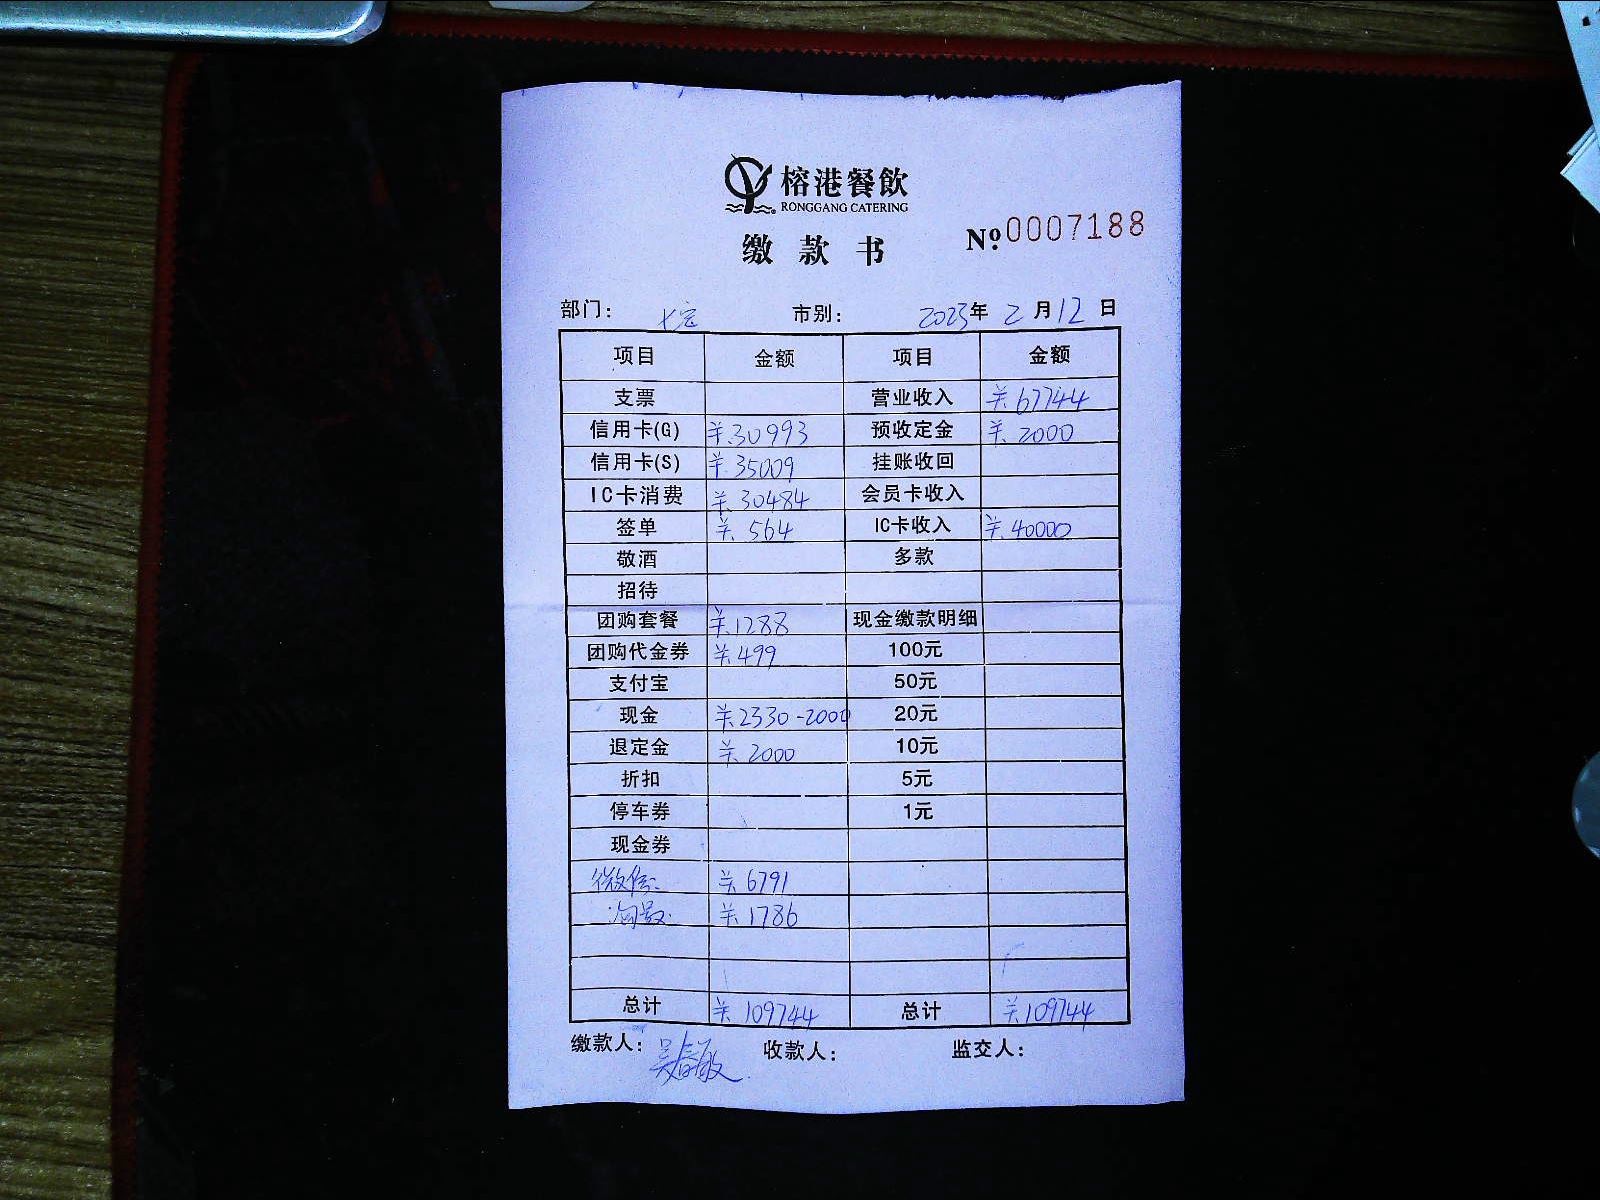 榕港餐飲
RONGGANG CATERING
缴款书
№ 0007188
部门： 市别： 2023年 2月12日
项目 金额 项目 金额
支票 营业收入 ¥67744
信用卡(G) ¥30993 预收定金 ¥2000
信用卡(S) ¥35009 挂账收回
IC卡消费 ¥30484 会员卡收入
签单 ¥564 IC卡收入 ¥40000
敬酒 多款
招待
团购套餐 ¥1288 现金缴款明细
团购代金券 ¥499 100元
支付宝 50元
现金 ¥2330-2000 20元
退定金 ¥2000 10元
折扣 5元
停车券 1元
现金券
微信: ¥6791
¥1786
总计 ¥109744 总计 ¥109744
缴款人：吴春敏 收款人： 监交人：